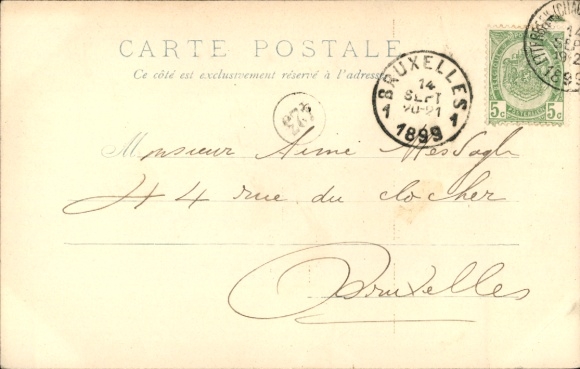 CARTE POSTALE
Ce côté est exclusivement réservé à l'adresse
BRUXELLES
14
SEPT
20-21
1 1899 1
14
SEPT
1899
5c 5c
Monsieur Aimé Mesdagh
44 rue du clocher
Bruxelles